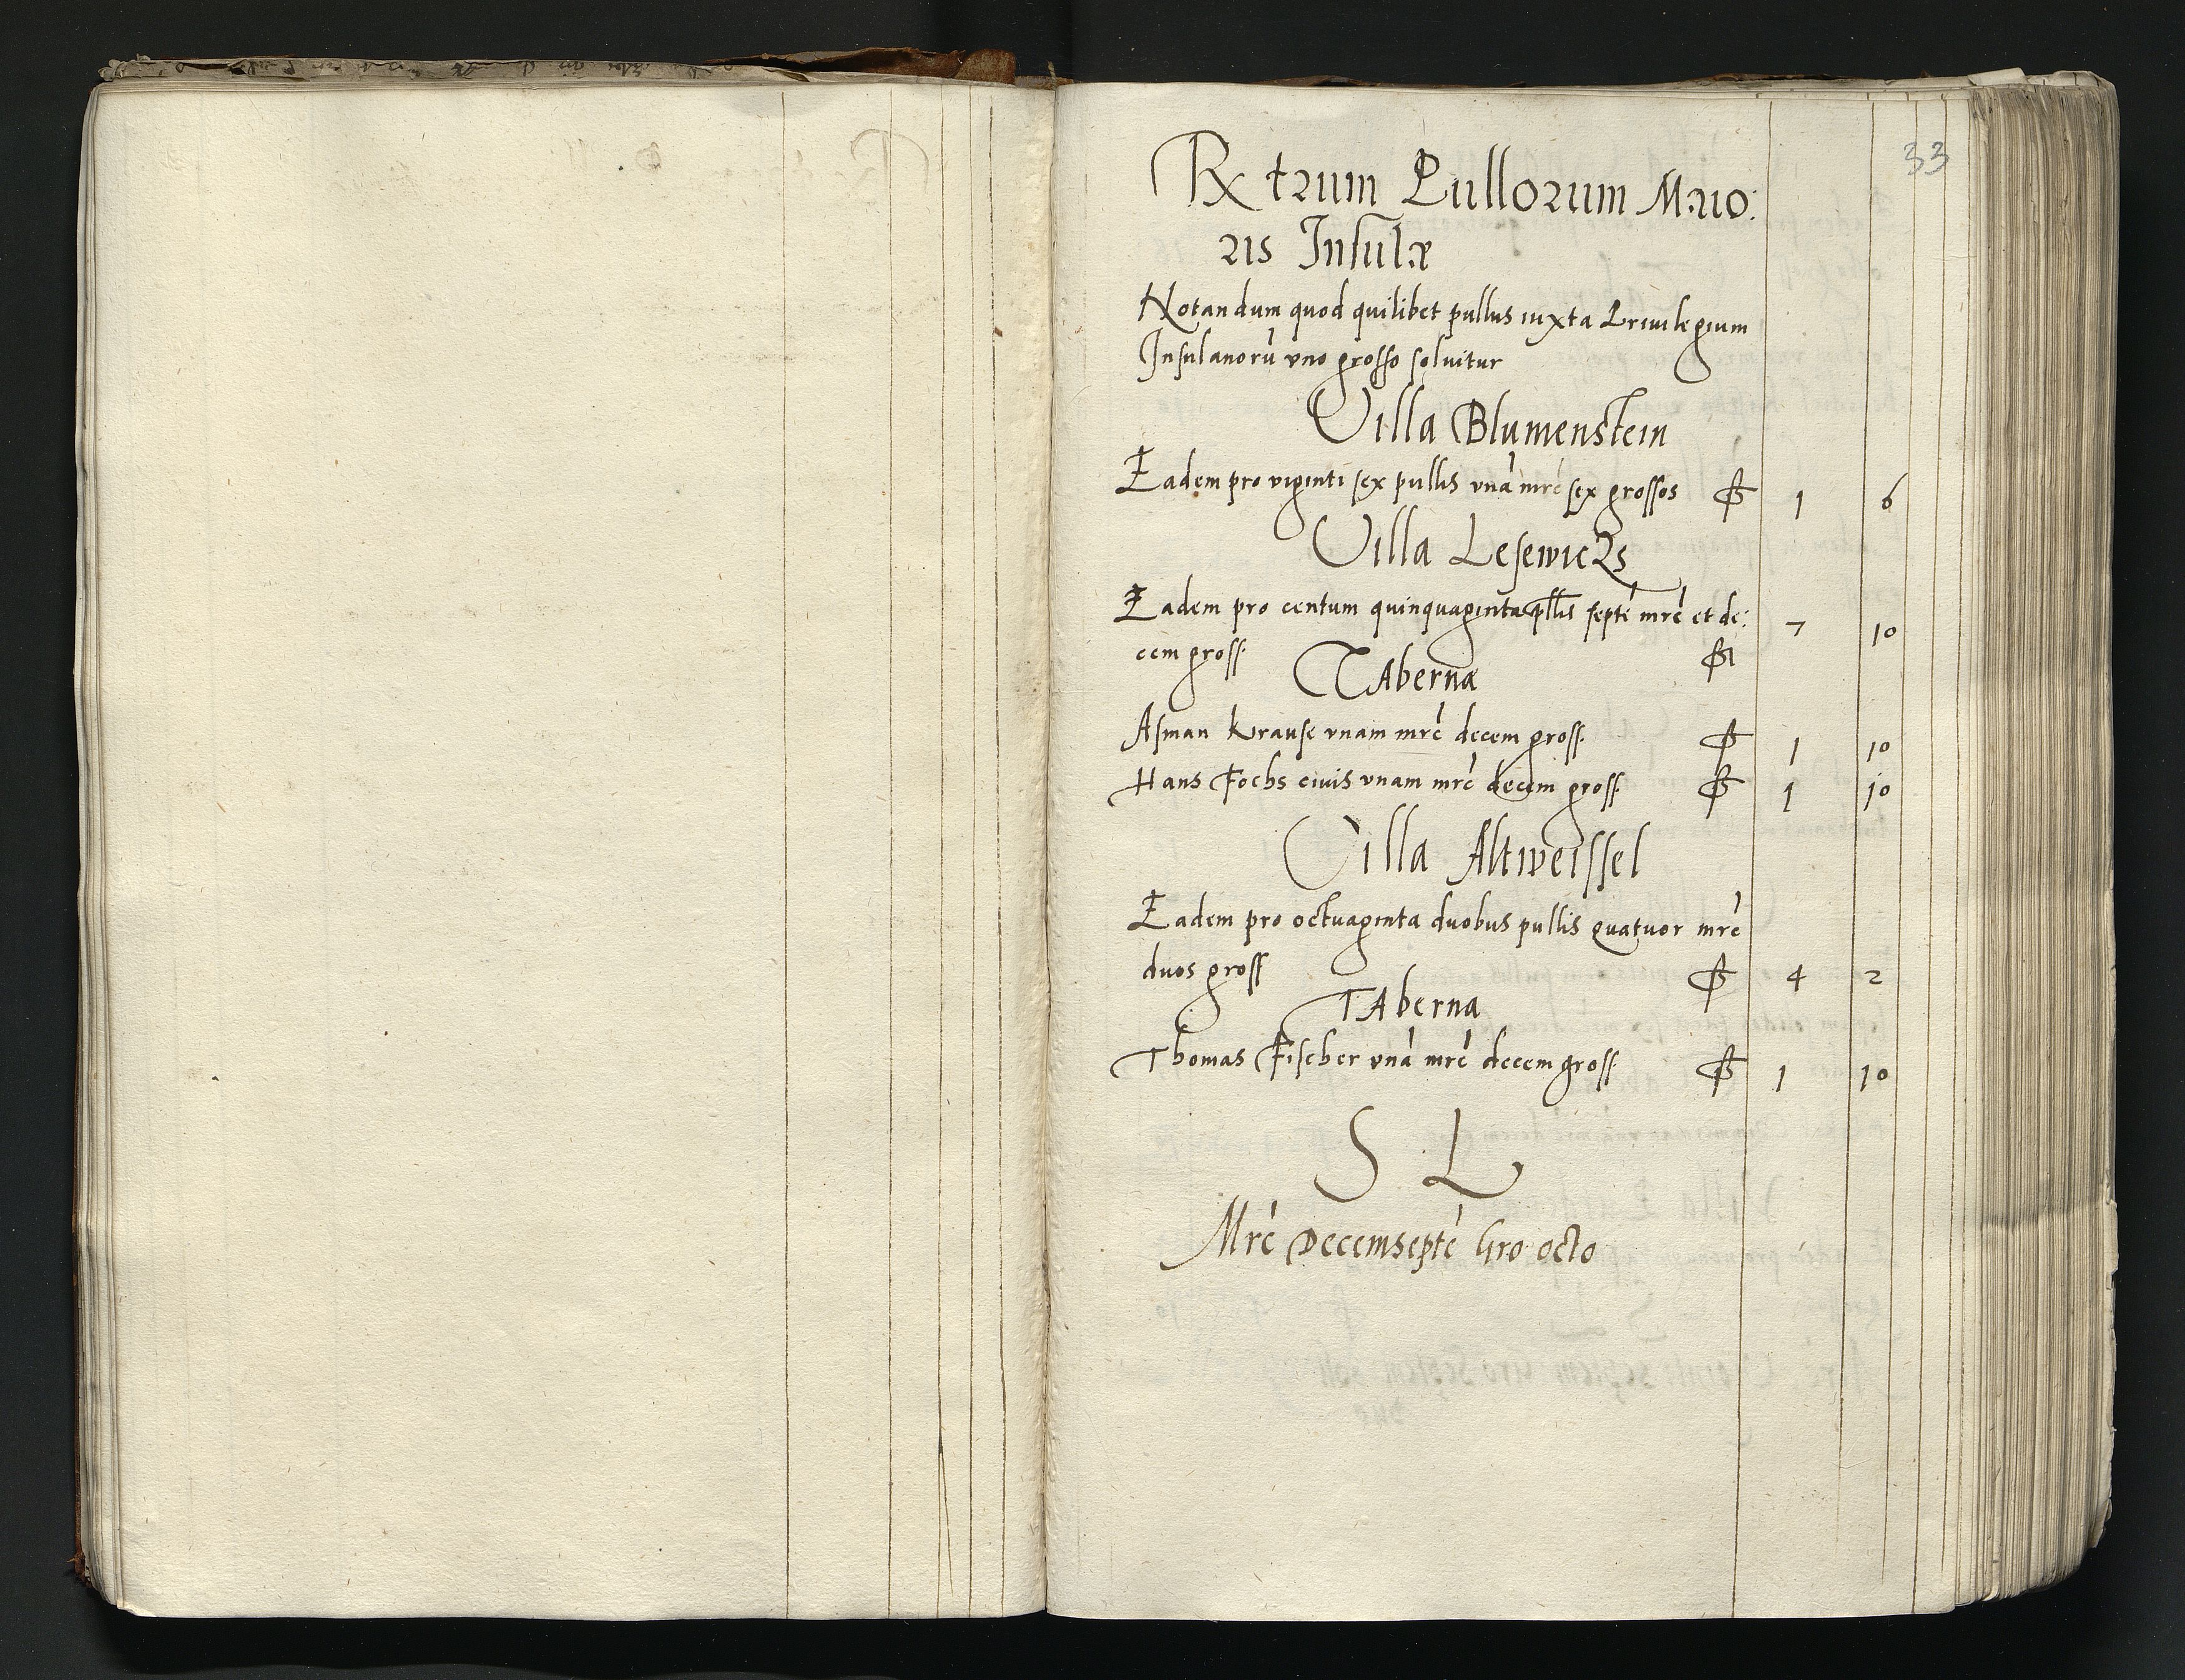 33
Rx trum Pullorum Maio:
ris Insulæ
Notandum quod quilibet pullus iuxta Priuilegium
Insulanorū vno grosso soluitur
Villa Blumenstein
Eadem pro viginti sex pullis vnā mrc̄ sex grossos 1 6
Villa Lesewicks
Eadem pro centum quinquaginta pllis septē mrc̄ et de: 7 10
cem gross.
Tabernæ
Asman Krause vnam mrc̄ decem gross. 1 10
Hans Fochs ciuis vnam mrc̄ decem gross. 1 10
Villa Altweissel
Eadem pro octuaginta duobus pullis quatuor mrc̄
duos gross 4 2
Taberna
Thomas Fischer vnā mrc̄ decem gross. 1 10
S L
Mrc̄ Decemseptē Gro octo